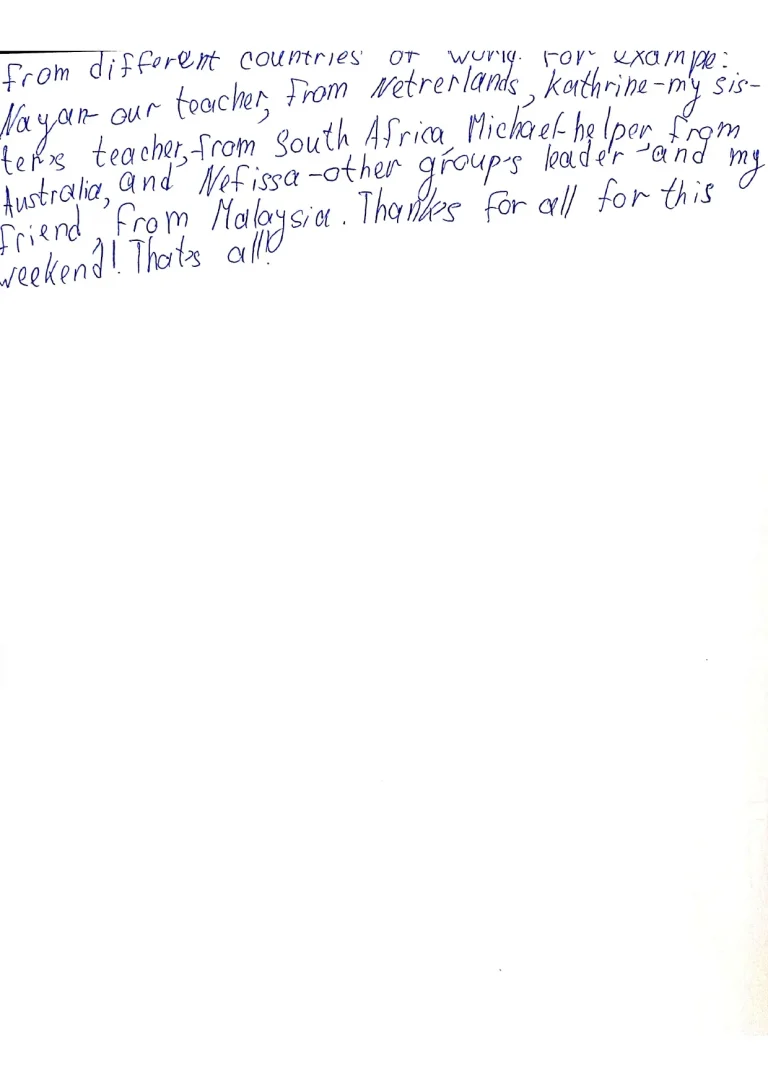 from different countries of world. For example:
Nayan our teacher, from Netrerlands, Kathrine-my sis-
ter's teacher, from South Africa, Michael-helper from
Australia, and Nefissa-other group's leader and my
friend, from Malaysia. Thanks for all for this
weekend! That's all!